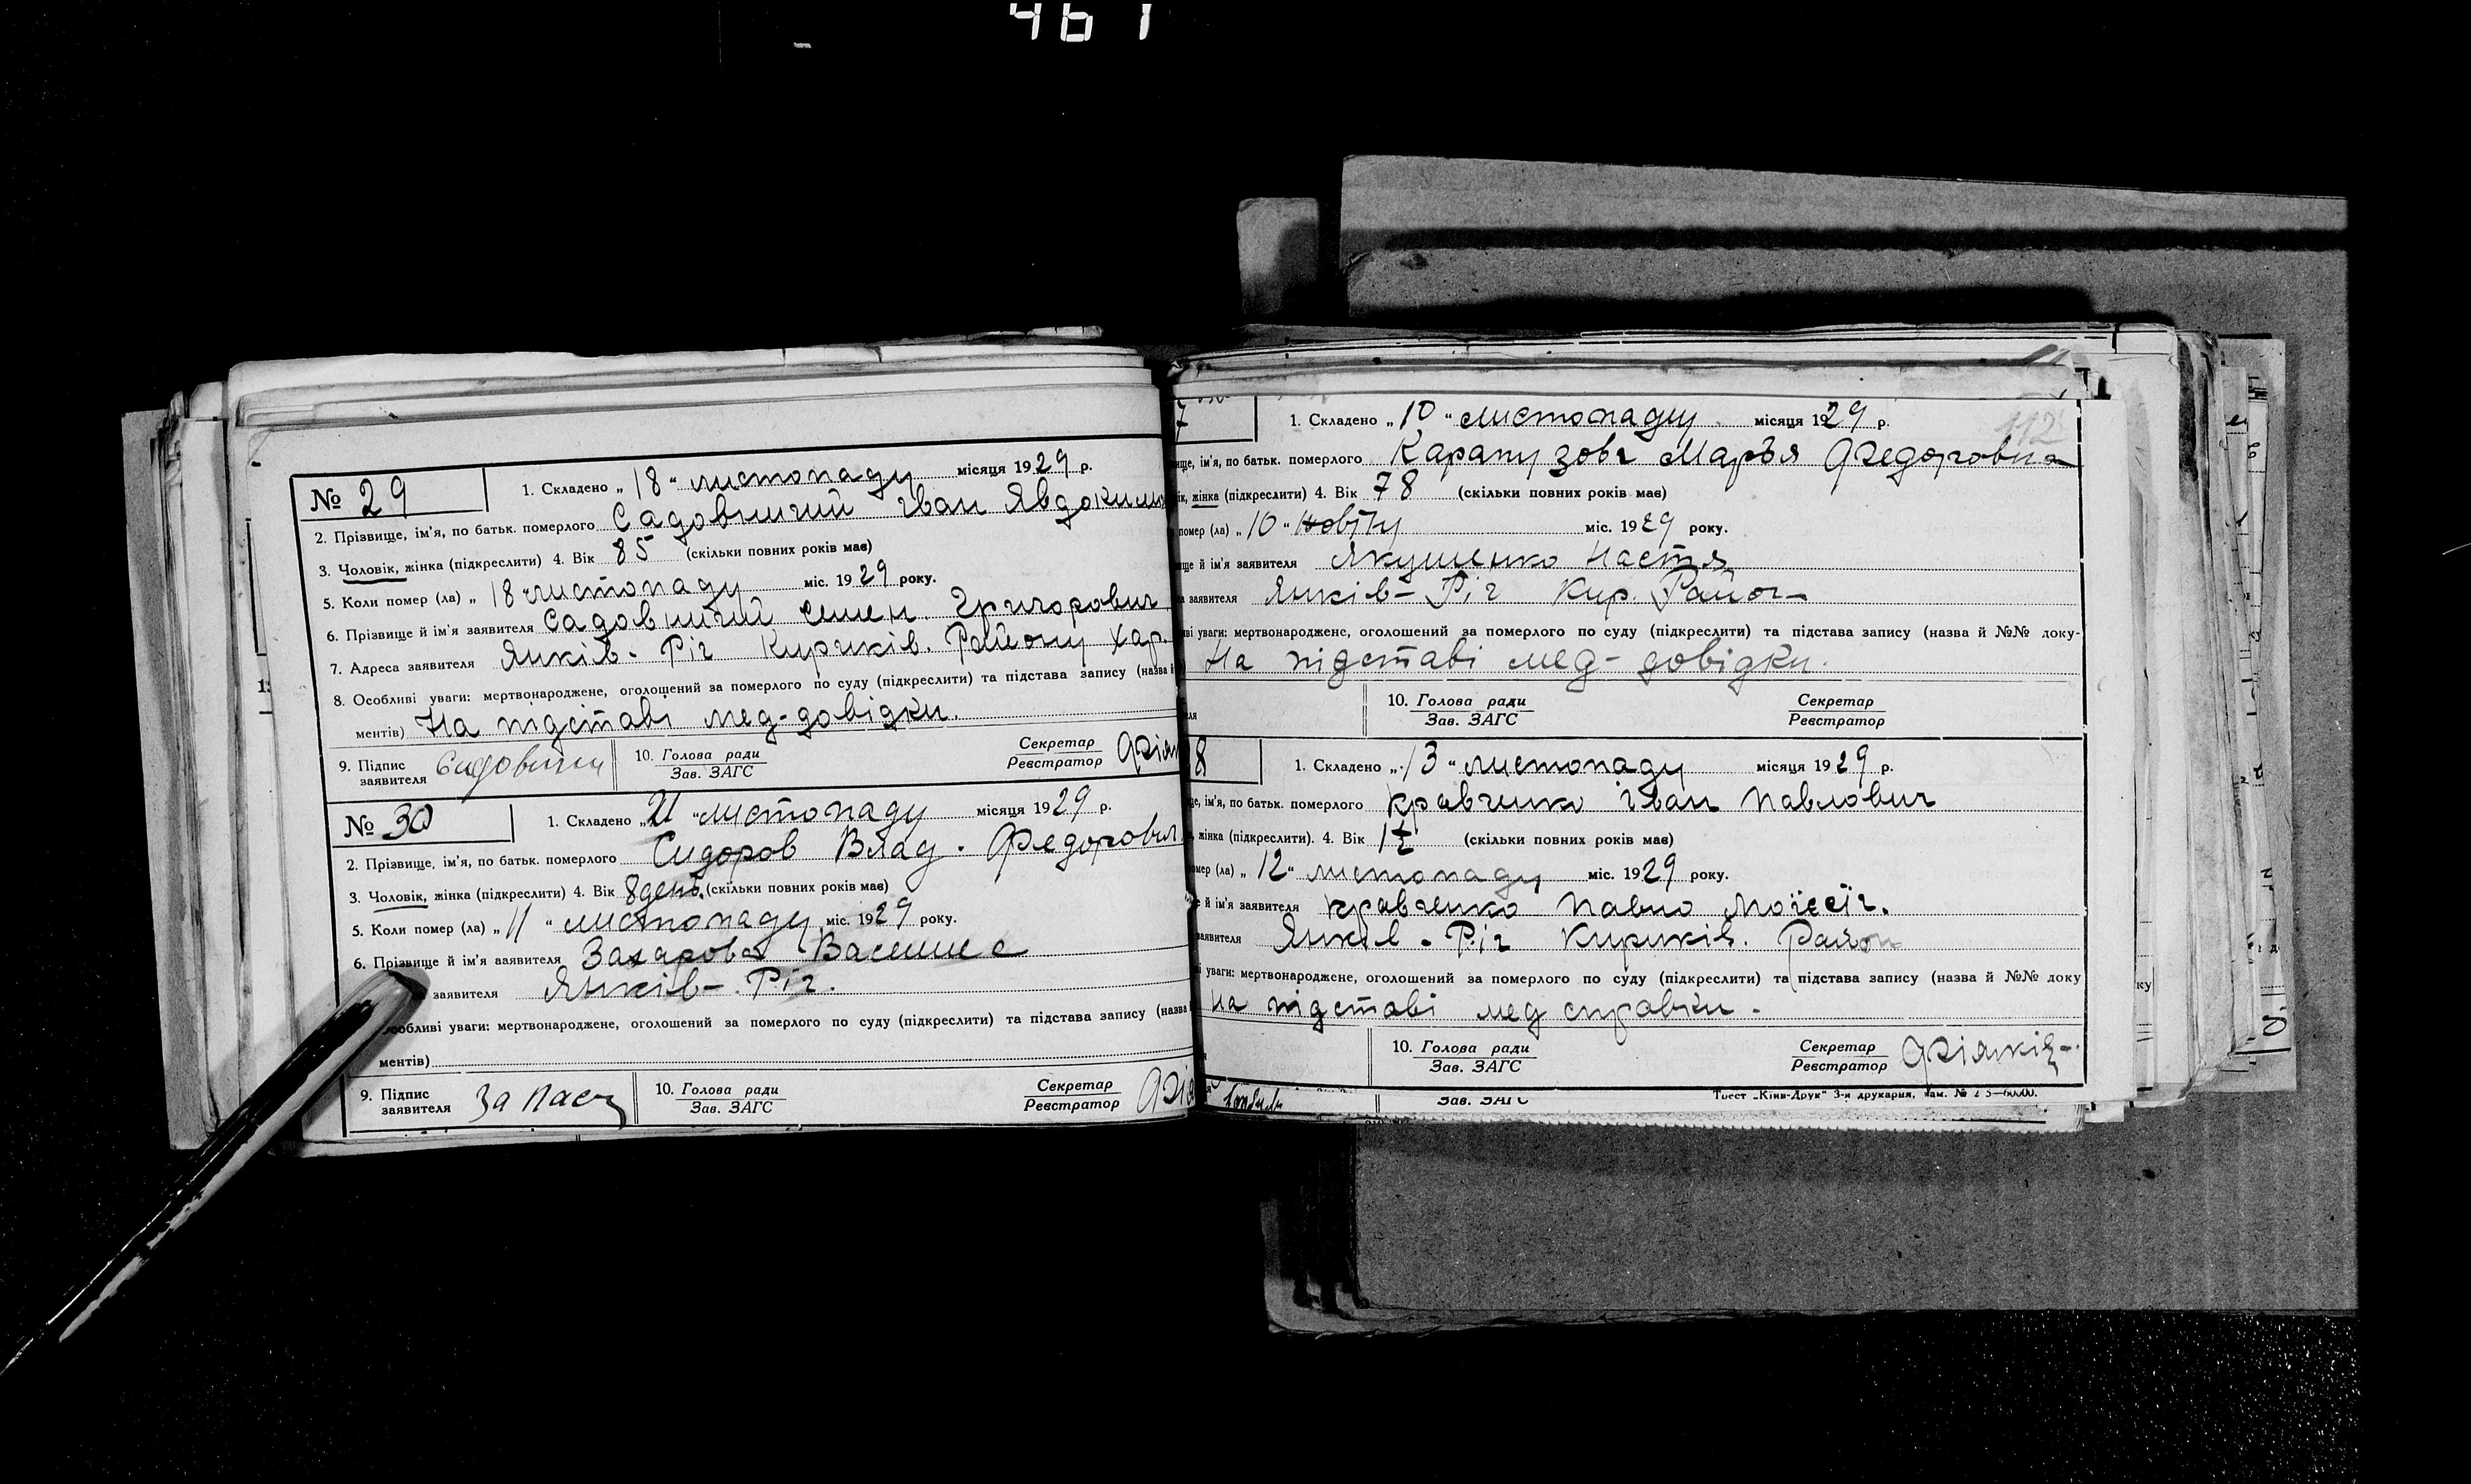 461
№ 29
1. Складено „18“ листопаду місяця 1929 р.
2. Прізвище, ім'я, по батьк. померлого Садовничий Іван Явдоким
3. Чоловік, жінка (підкреслити) 4. Вік 85 (скільки повних років має)
5. Коли помер (ла) „18 листопаду міс. 1929 року.
6. Прізвище й ім'я заявителя Садовничий Семен Григорович
7. Адреса заявителя Янків-Ріг Кириків. Району Хар.
8. Особливі уваги: мертвонароджене, оголошений за померлого по суду (підкреслити) та підстава запису (назва й
ментів) На підставі мед-довідки.
9. Підпис заявителя 10. Голова ради Зав. ЗАГС Секретар Реєстратор
№ 30
1. Складено „ “ листопаду місяця 1929 р.
2. Прізвище, ім'я, по батьк. померлого Сидоров Влад. Федорович
3. Чоловік, жінка (підкреслити) 4. Вік 8 день. (скільки повних років має)
5. Коли помер (ла) „11“ листопаду міс. 1929 року.
6. Прізвище й ім'я заявителя Захарова
заявителя Янків-Ріг.
собливі уваги: мертвонароджене, оголошений за померлого по суду (підкреслити) та підстава запису (назва
ментів)
9. Підпис заявителя 10. Голова ради Зав. ЗАГС Секретар Реєстратор
7
1. Складено „10“ листопаду місяця 1929 р.
112
ище, ім'я, по батьк. померлого Марья Федоровна
ік, жінка (підкреслити) 4. Вік 78 (скільки повних років має)
помер (ла) „10“ міс. 1929 року.
ище й ім'я заявителя Якушенко Настя
а заявителя Янків-Ріг Кир. Район
ві уваги: мертвонароджене, оголошений за померлого по суду (підкреслити) та підстава запису (назва й №№ доку-
На підставі мед-довідки.
10. Голова ради Зав. ЗАГС Секретар Реєстратор
8
1. Складено „13“ листопаду місяця 1929 р.
е, ім'я, по батьк. померлого Кравченко Іван Павлович
, жінка (підкреслити). 4. Вік 1½ (скільки повних років має)
омер (ла) „12“ листопаду міс. 1929 року.
е й ім'я заявителя Кравченко Павло
заявителя Янків-Ріг Кириків. Район
і уваги: мертвонароджене, оголошений за померлого по суду (підкреслити) та підстава запису (назва й №№ доку
на підставі мед справки.
10. Голова ради Зав. ЗАГС Секретар Реєстратор
Зав. ЗАГС
Трест „Київ-Друк“ 3-я друкарня,